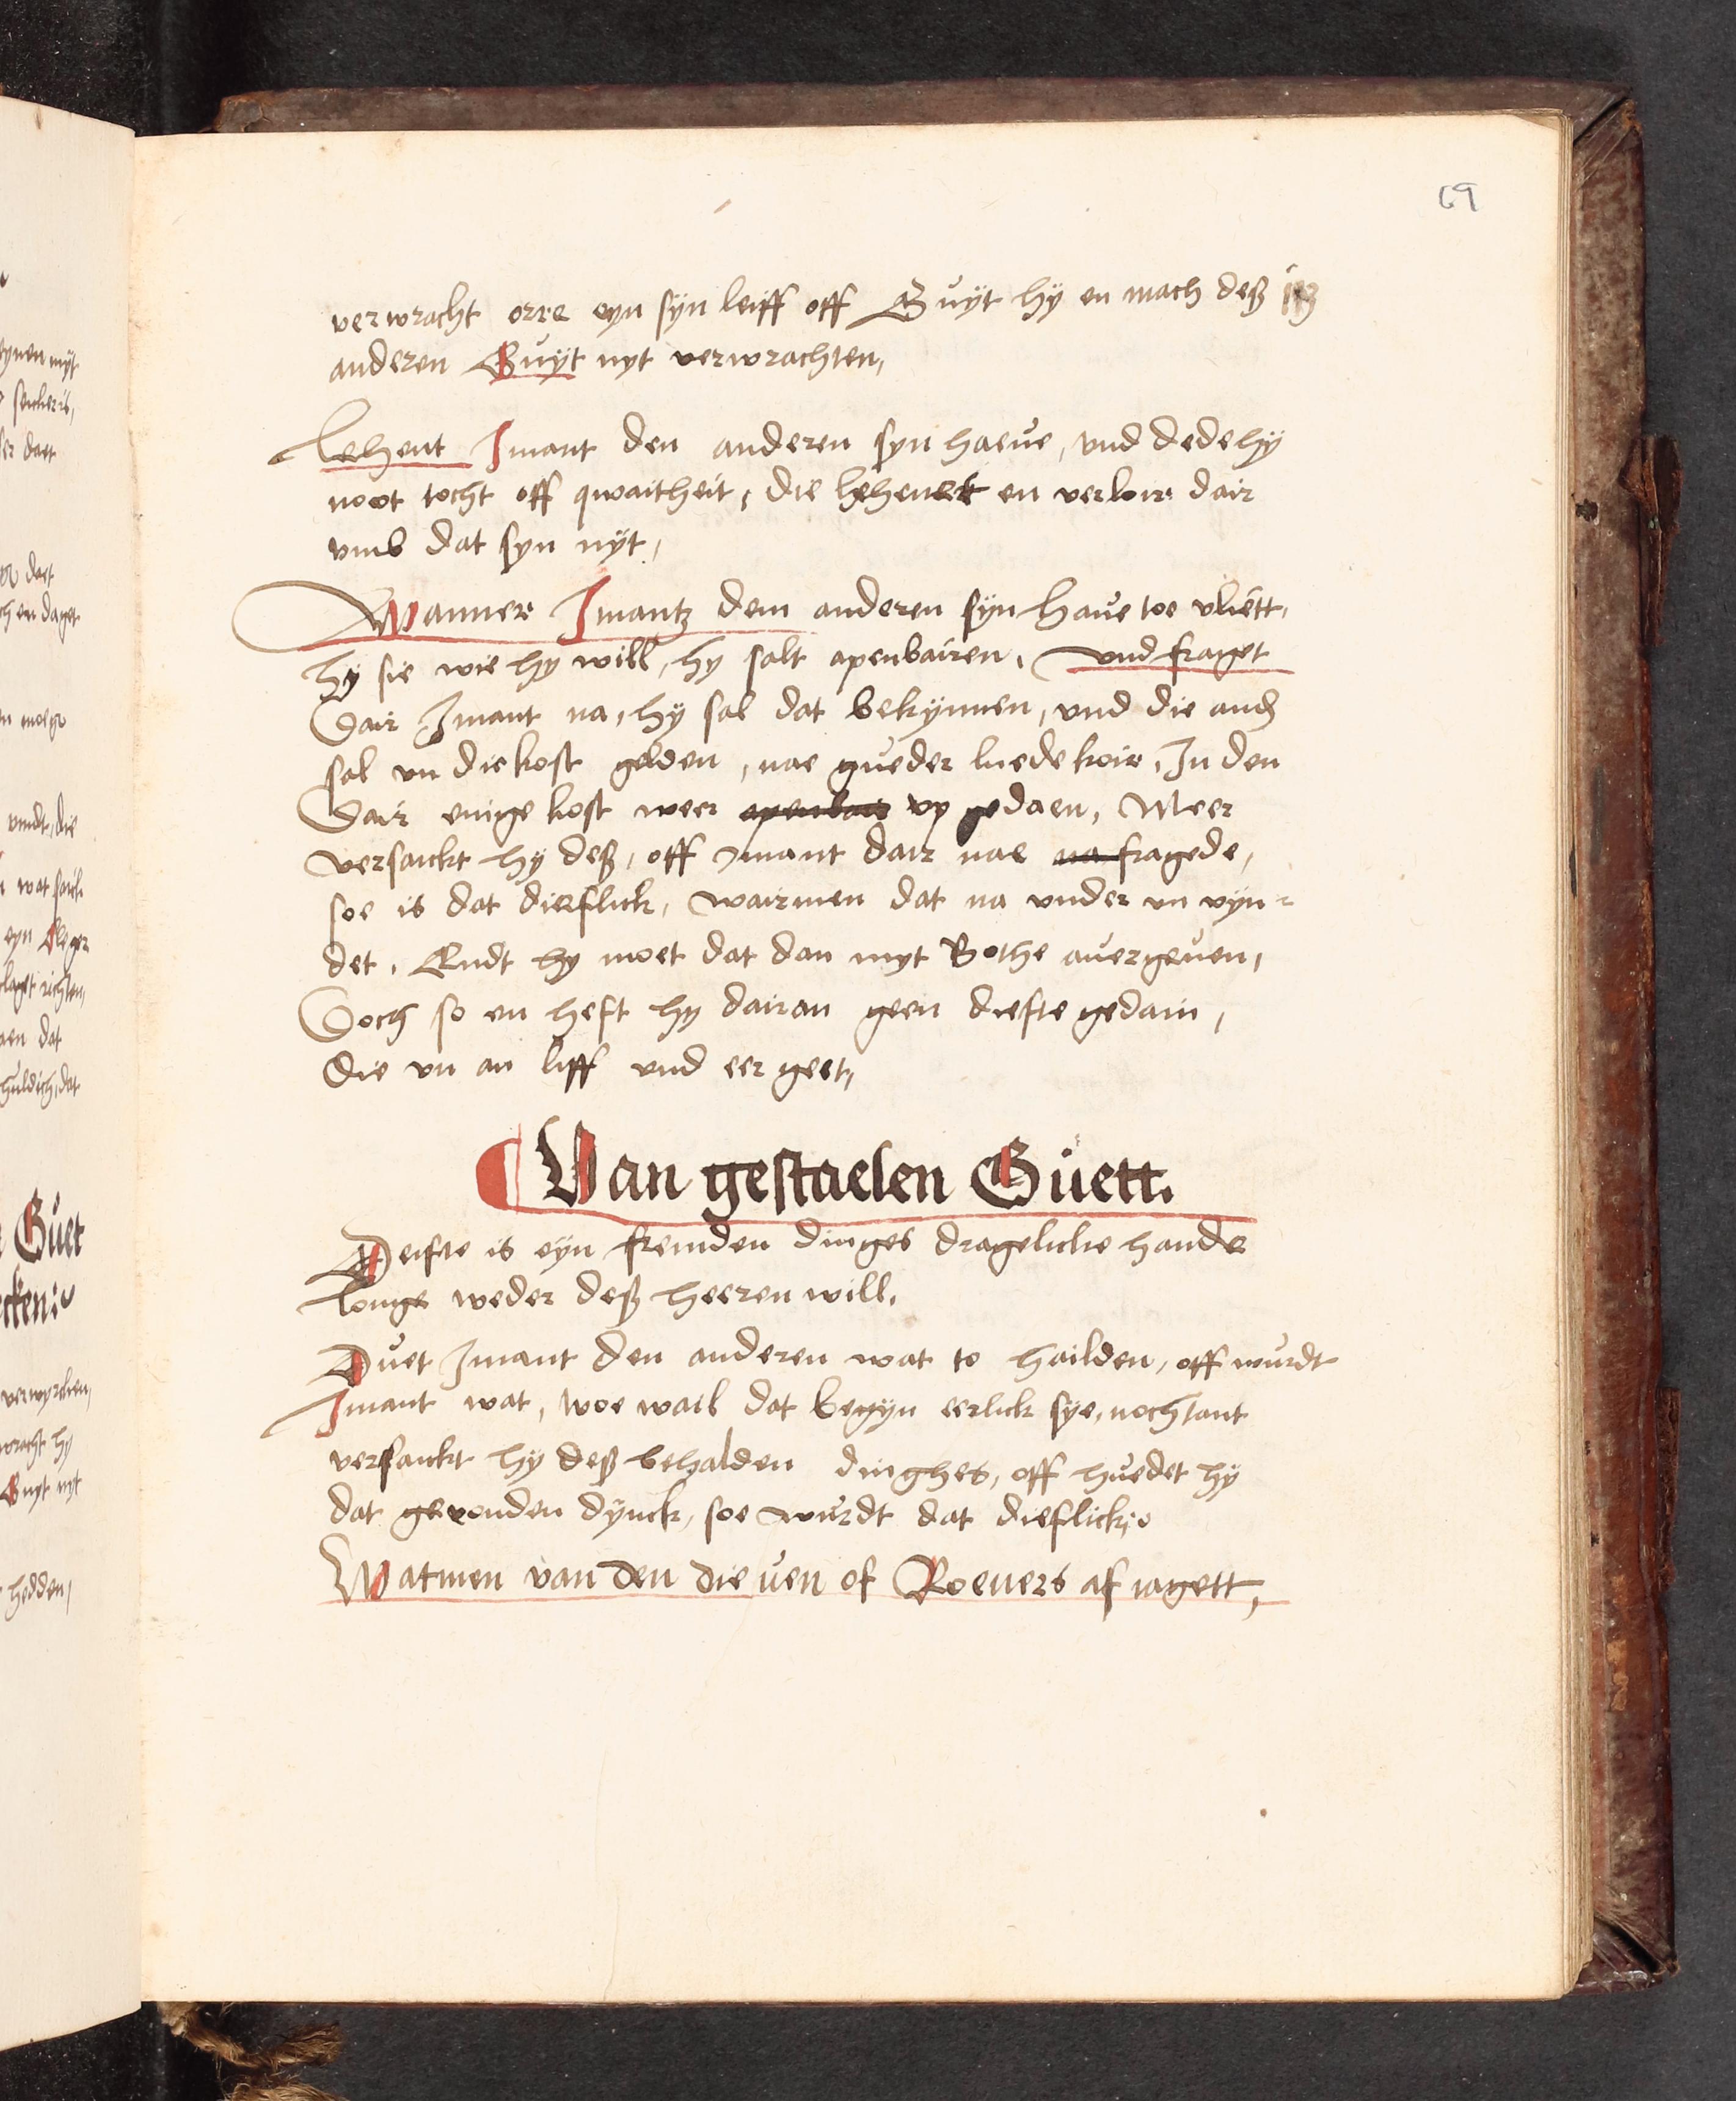 69
verwracht orre eyn syn leiff off Guyt hy en mach deß
anderen Guyt nyt verwrachten,
Lehent Jmant den anderen syn haeue, vnd dede hy
noot tocht off qwaitheit, die lehenet en verloir dair
vmb dat syn nyt,
Wanner Jmantz dem anderen syn haue toe vliett,
hy sie wie hy will, hy salt apenbairen, vnd fraget
Dair Jmant na, hy sal dat bekynnen, vnd die and
sal vn die kost gelden, nae gueder luede koir, In den
Dair enige kost weer apenbair vp gedaen, Meer
versaickt hy deß, off Jmant dair nae na fragede,
soe is dat dieflick, wairmen dat na vnder vn vyn-
det, Endt hy moet dat dan myt Bothe auergeuen,
Doch so en heft hy dairan geen diefte gedain,
die vn an liff vnd eer geet,
Van gestaelen Guett.
Deifte is eyn fremden dinges dragelicke hande
longe weder deß heeren will.
Duet Jmant den anderen wat to hailden, off wurdt
Jmant wat, woe wail dat begyn eerlick sye, nochtant
versaickt hy deß behalden dinghes, off huedet hy
dat gevonden dynck, soe wurdt dat dieflick:
Watmen van den dieuen of Roeuers af iagett,